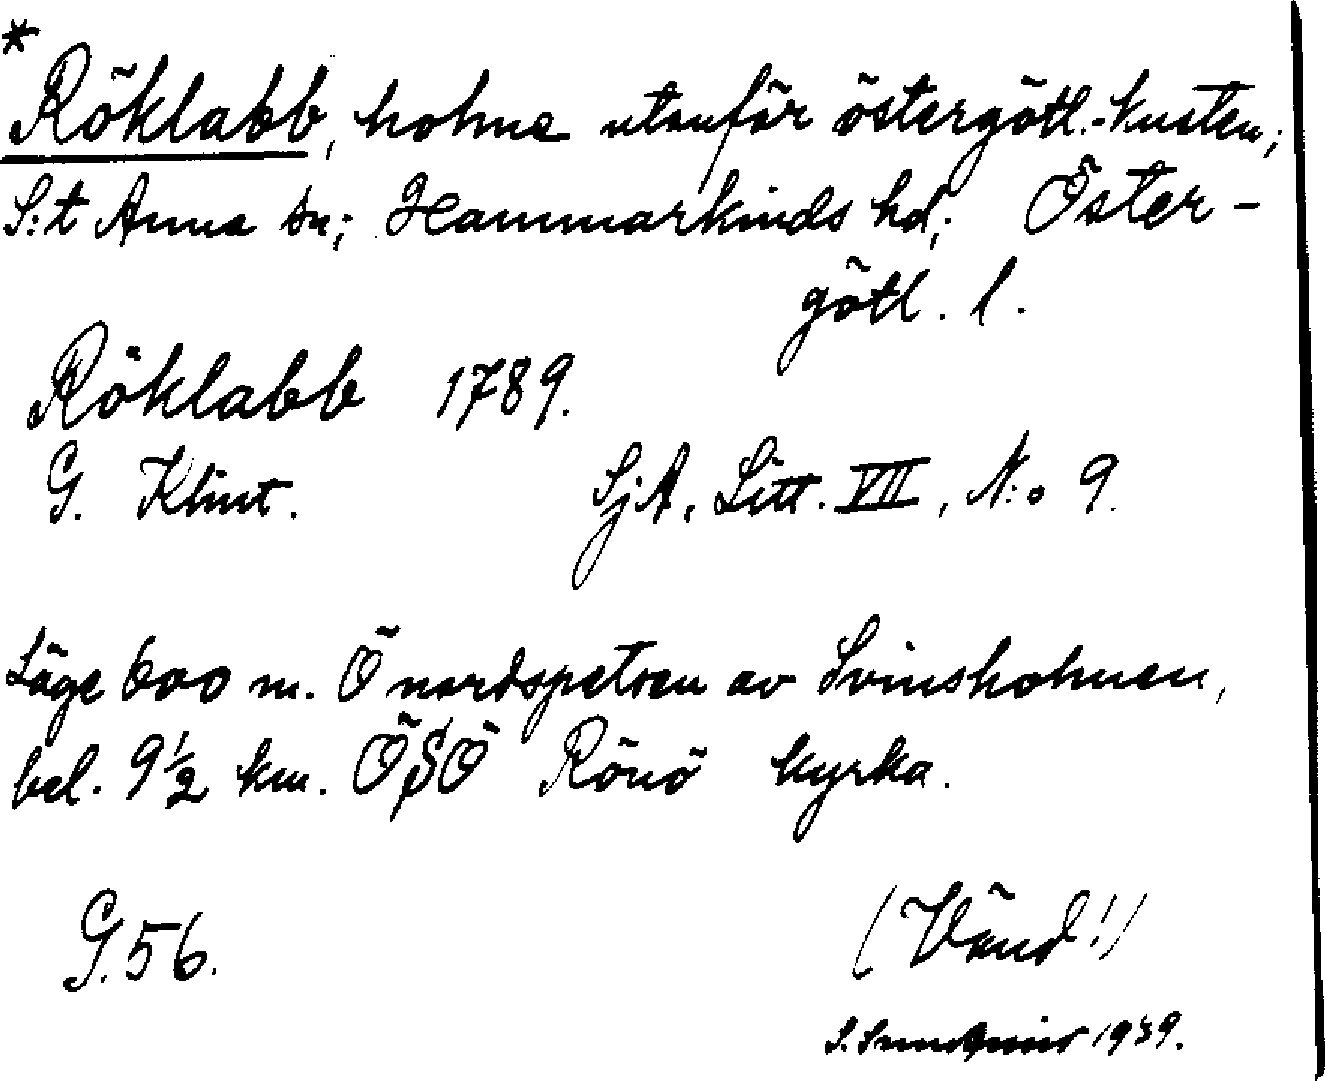 *
Röklabb, holme utanför östergötl.-kusten;
S:t Anna sn; Hammarkinds hd; Öster-
götl. l.
Röklabb 1789.
G. Klint. SjA, Litt. VII, N:o 9.
Läge 600 m. Ö nordspetsen av Svinsholmen,
bel. 9½ km. ÖSÖ Rönö kyrka.
G. 56. (Vänd!)
S. 1939.